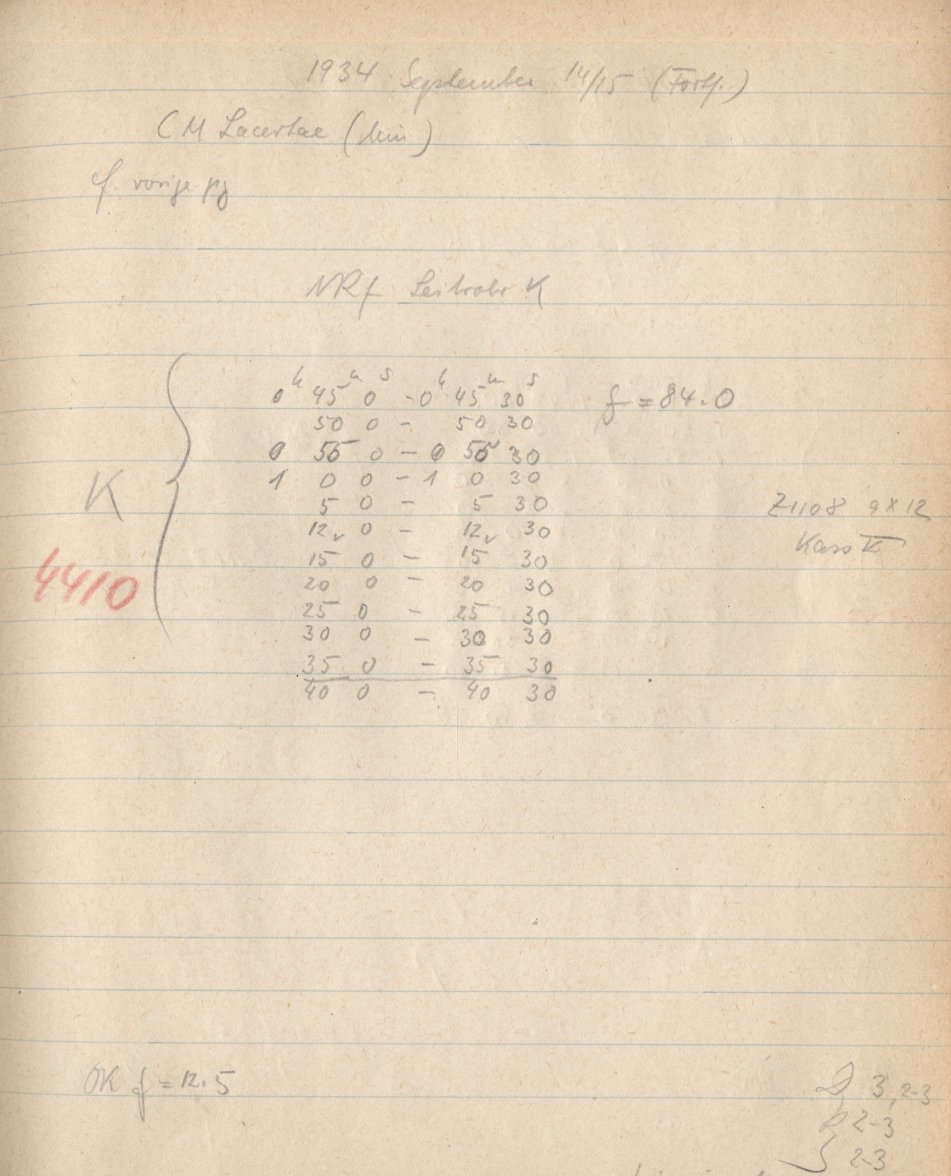 1934 September 14/15 (Forts.)
CM Lacertae (Min)
cf. vorige pg
NRf Leitrohr K
0h 45m 0s - 0h 45m 30s f = 84.0
50 0 - 50 30
0 55 0 - 0 55 30
1 0 0 - 1 0 30
5 0 - 5 30
K
12 0 - 12 30
Z1108 9x12
Kass K
15 0 - 15 30
4410
20 0 - 20 30
25 0 - 25 30
30 0 - 30 30
35 0 - 35 30
40 0 - 40 30
OK f = 12.5
3, 2-3
2-3
2-3